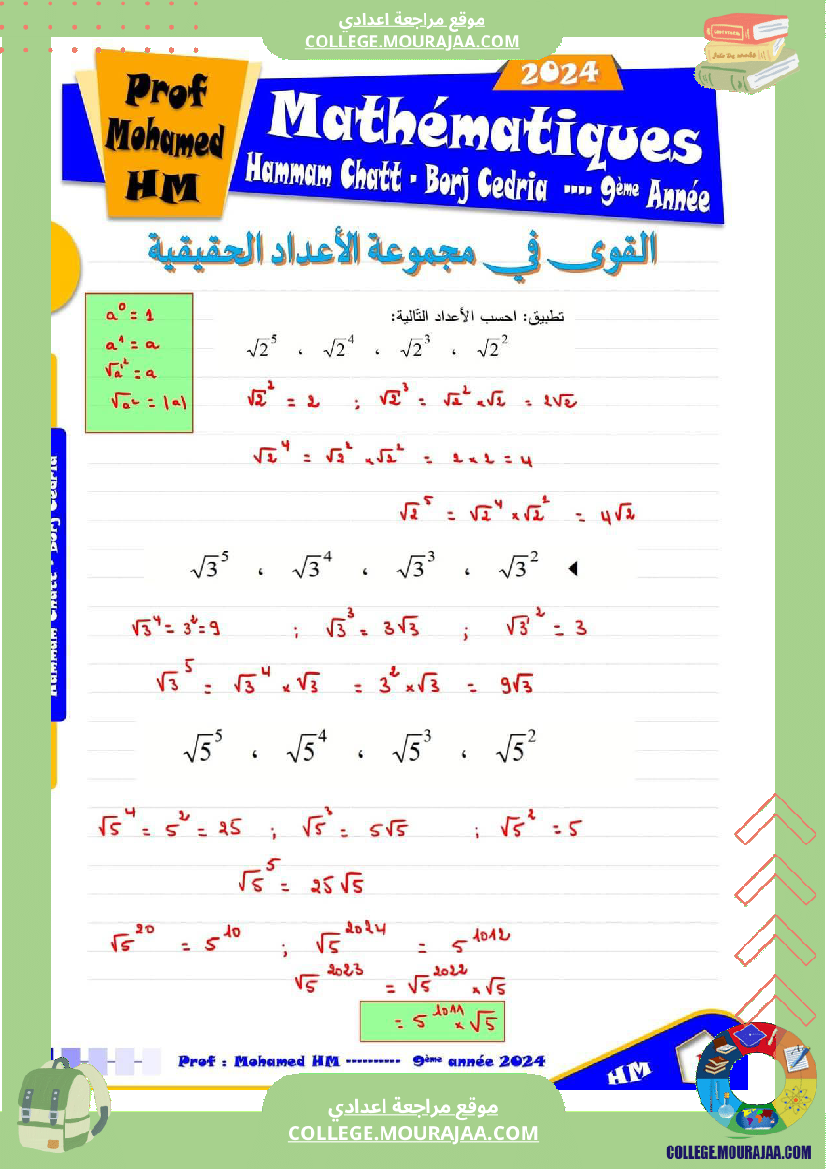 موقع مراجعة اعدادي
COLLEGE.MOURAJAA.COM
2024
Prof
Mohamed
HM
Mathématiques
Hammam Chatt - Borj Cedria ---- 9ème Année
القوى في مجموعة الأعداد الحقيقية
a⁰ = 1
a¹ = a
√a² = a
√a² = |a|
تطبيق: احسب الأعداد التالية:
√2⁵ ، √2⁴ ، √2³ ، √2²
√2² = 2 ; √2³ = √2² × √2 = 2√2
√2⁴ = √2² × √2² = 2 × 2 = 4
√2⁵ = √2⁴ × √2² = 4√2
√3⁵ ، √3⁴ ، √3³ ، √3² ◄
√3⁴ = 3² = 9 ; √3³ = 3√3 ; √3² = 3
√3⁵ = √3⁴ × √3 = 3² × √3 = 9√3
√5⁵ ، √5⁴ ، √5³ ، √5²
√5⁴ = 5² = 25 ; √5³ = 5√5 ; √5² = 5
√5⁵ = 25√5
√5²⁰ = 5¹⁰ ; √5²⁰²⁴ = 5¹⁰¹²
√5²⁰²³ = √5²⁰²² × √5
= 5¹⁰¹¹ × √5
Hammam Chatt - Borj Cedria
Prof : Mohamed HM ---------- 9ème année 2024
HM
موقع مراجعة اعدادي
COLLEGE.MOURAJAA.COM
COLLEGE.MOURAJAA.COM